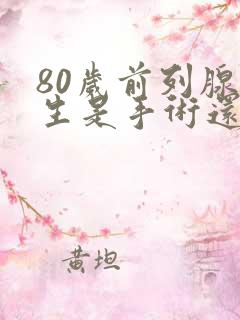 80歲前列腺
生是手術還
黃坦